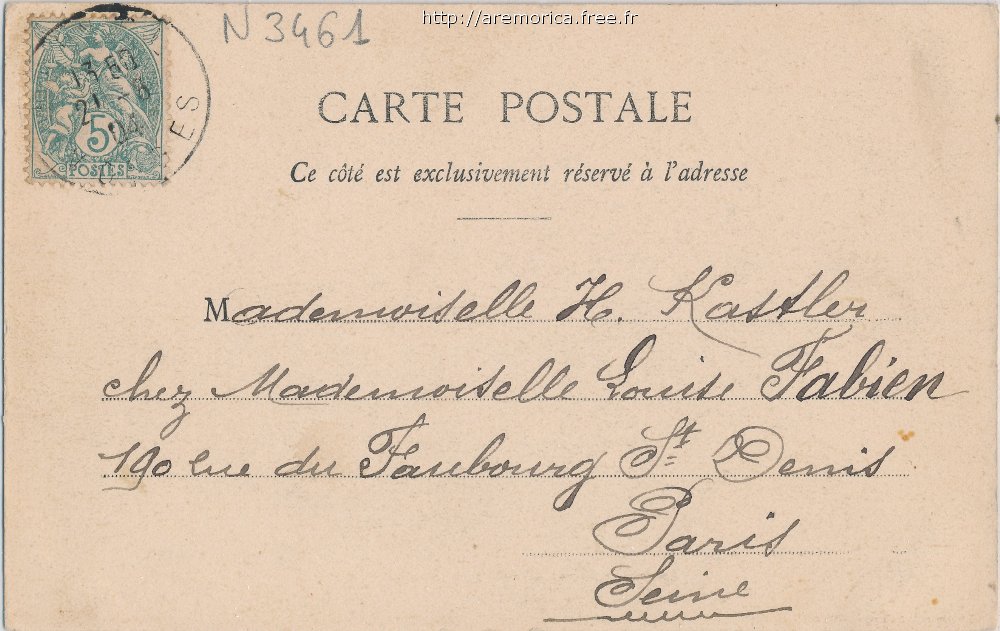 http://aremorica.free.fr
N3461
5
POSTES
21 - 5
04
ES
CARTE POSTALE
Ce côté est exclusivement réservé à l'adresse
Mademoiselle H. Kastler
chez Mademoiselle Louise Fabien
190 rue du Faubourg St Denis
Paris
Seine